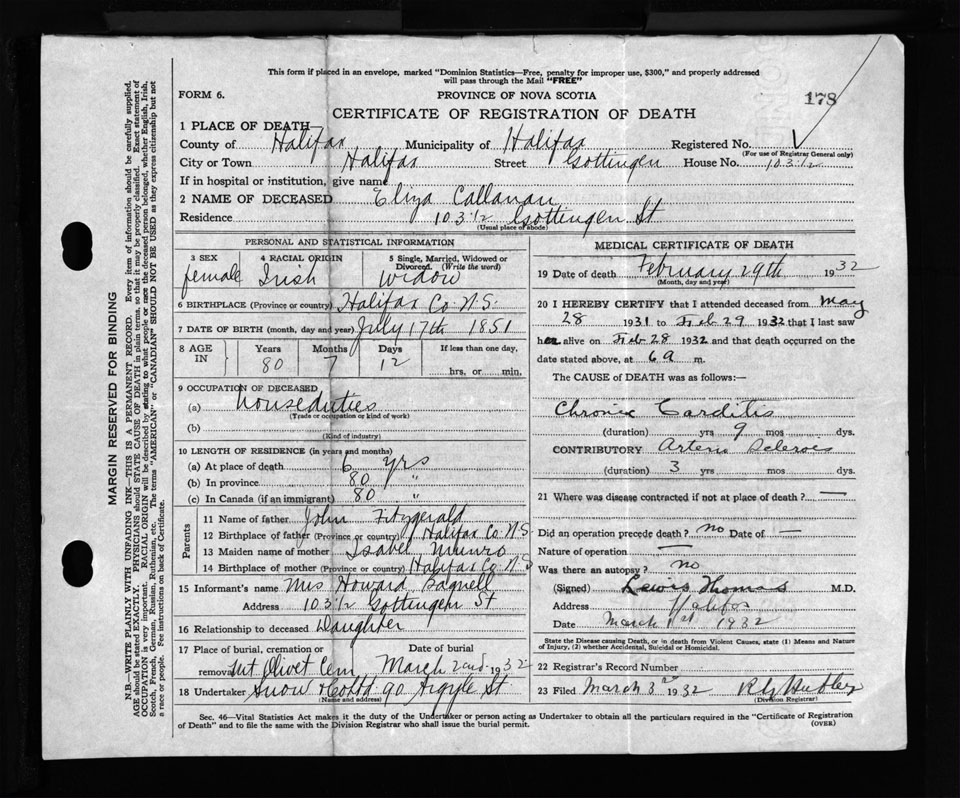 This form if placed in an envelope, marked "Dominion Statistics—Free, penalty for improper use, $300," and properly addressed
will pass through the Mail "FREE"
FORM 6. PROVINCE OF NOVA SCOTIA 178
CERTIFICATE OF REGISTRATION OF DEATH
1 PLACE OF DEATH—
County of Halifax Municipality of Halifax Registered No.
(For use of Registrar General only)
City or Town Halifax Street Gottingen House No. 103 1/2
If in hospital or institution, give name
2 NAME OF DECEASED Eliza Callanan
Residence 103 1/2 Gottingen St
(Usual place of abode)
PERSONAL AND STATISTICAL INFORMATION
3 SEX 4 RACIAL ORIGIN 5 Single, Married, Widowed or Divorced. (Write the word)
female Irish Widow
6 BIRTHPLACE (Province or country) Halifax Co. N.S.
7 DATE OF BIRTH (month, day and year) July 17th 1851
8 AGE IN Years Months Days If less than one day,
80 7 12 hrs, or min.
9 OCCUPATION OF DECEASED
(a) houseduties
(Trade or occupation or kind of work)
(b)
(Kind of industry)
10 LENGTH OF RESIDENCE (in years and months)
(a) At place of death 6 yrs
(b) In province 80 "
(c) In Canada (if an immigrant) 80 "
Parents
11 Name of father John Fitzgerald
12 Birthplace of father (Province or country) Halifax Co N.S
13 Maiden name of mother Isabel Munro
14 Birthplace of mother (Province or country) Halifax Co. N S
15 Informant's name Mrs Howard Bagnell
Address 103 1/2 Gottingen St
16 Relationship to deceased Daughter
17 Place of burial, cremation or removal Date of burial
Mt Olivet Cem March 2nd 1932
18 Undertaker Snow & Co Ltd 90 Argyle St
(Name and address)
MEDICAL CERTIFICATE OF DEATH
19 Date of death February 29th 1932
(Month, day and year)
20 I HEREBY CERTIFY that I attended deceased from May
28 1931 to Feb 29 1932 that I last saw
her alive on Feb 28 1932 and that death occurred on the
date stated above, at 6 a m.
The CAUSE of DEATH was as follows:—
Chronic Carditis
(duration) yrs 9 mos dys.
CONTRIBUTORY Arterio Scleroes
(duration) 3 yrs mos dys.
21 Where was disease contracted if not at place of death? —
Did an operation precede death? no Date of —
Nature of operation —
Was there an autopsy? no
(Signed) Lewis Thomas M.D.
Address Halifax
Date March 1st 1932
State the Disease causing Death, or in death from Violent Causes, state (1) Means and Nature
of Injury, (2) whether Accidental, Suicidal or Homicidal.
22 Registrar's Record Number
23 Filed March 3rd 1932
(Division Registrar)
Sec. 46—Vital Statistics Act makes it the duty of the Undertaker or person acting as Undertaker to obtain all the particulars required in the "Certificate of Registration
of Death" and to file the same with the Division Registrar who shall issue the burial permit. (OVER)
MARGIN RESERVED FOR BINDING
N.B.—WRITE PLAINLY WITH UNFADING INK—THIS IS A PERMANENT RECORD. Every item of information should be carefully supplied.
AGE should be stated EXACTLY. PHYSICIANS should STATE CAUSE OF DEATH in plain terms, so that it may be properly classified. Exact statement of
OCCUPATION is very important. RACIAL ORIGIN will be described by stating to what people or race the deceased person belonged, whether English, Irish,
Scotch, French, German, Russian, Ruthenian, etc. The terms "AMERICAN" or "CANADIAN" SHOULD NOT BE USED as they express citizenship but not
a race or people. Fee instructions on back of Certificate.